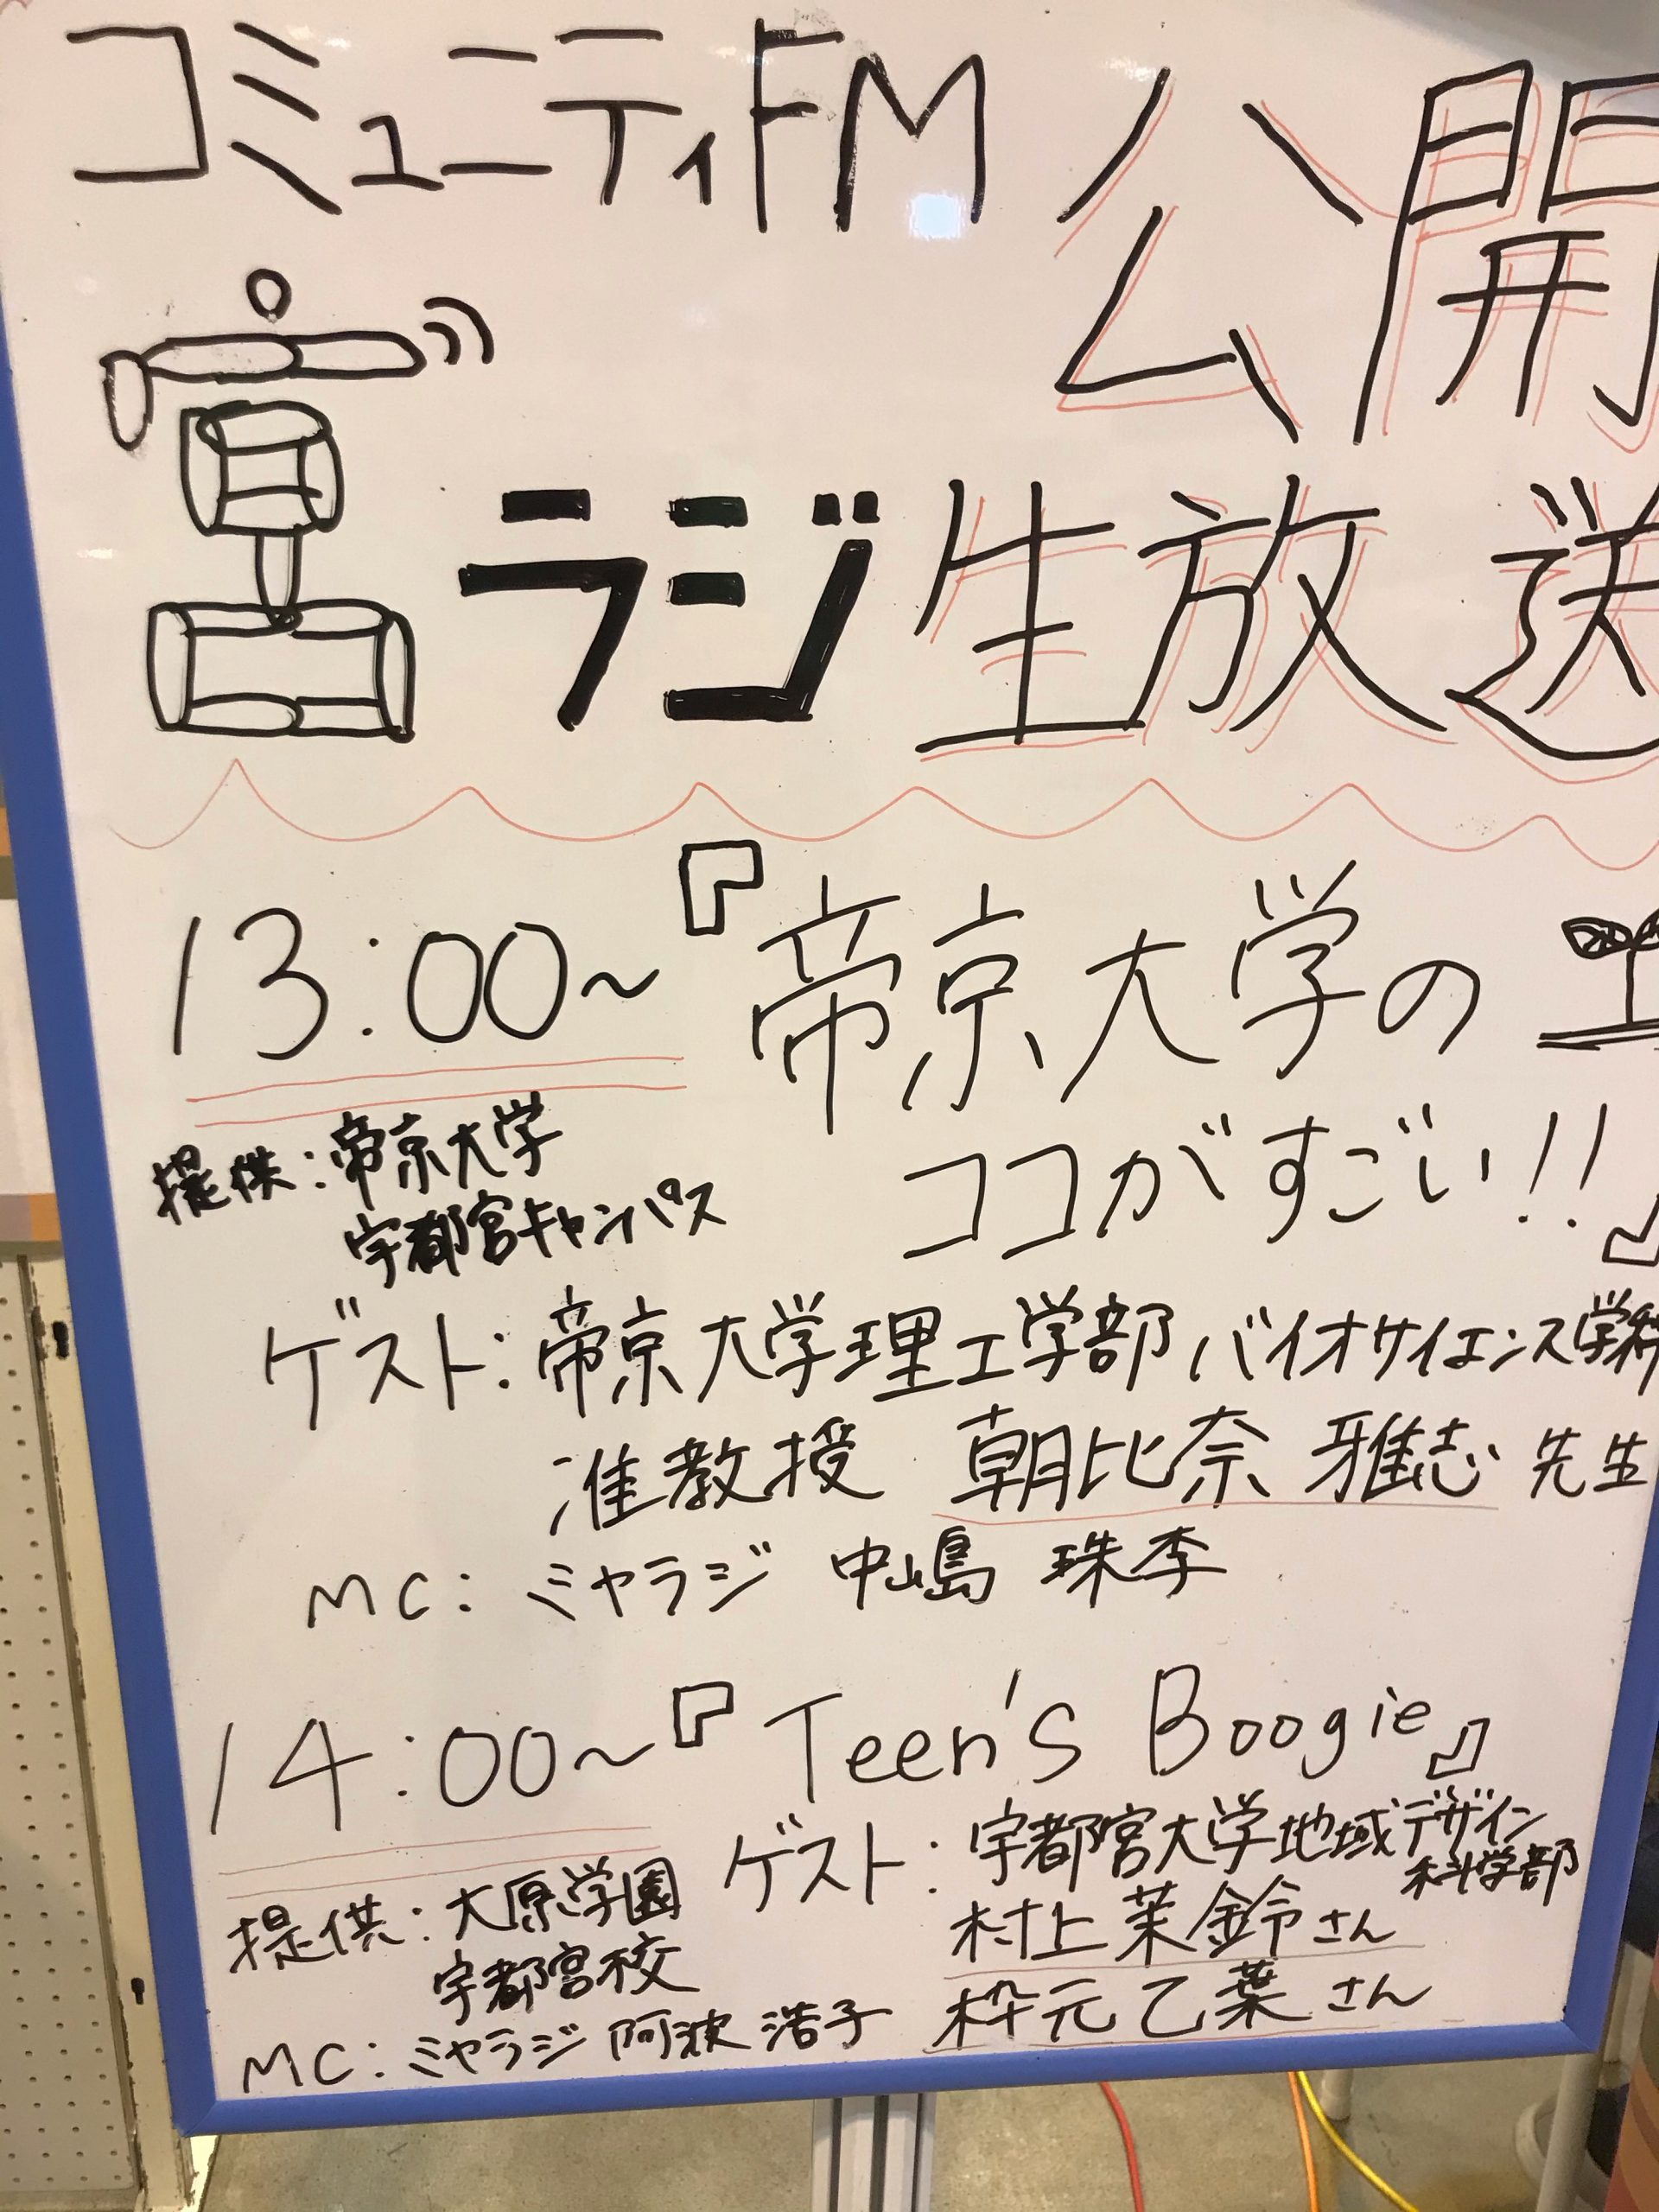 コミュニティFM 公開
宮ラジ生放送
13:00~『帝京大学の
ココがすごい!!』
提供:帝京大学
宇都宮キャンパス
ゲスト:帝京大学理工学部バイオサイエンス学科
准教授 朝比奈 雅志 先生
MC:ミヤラジ 中嶋 珠李
14:00~『Teen's Boogie』
提供:大原学園
宇都宮校
ゲスト:宇都宮大学地域デザイン
科学部
村上茉鈴さん
枠元乙葉さん
MC:ミヤラジ 阿波 浩子